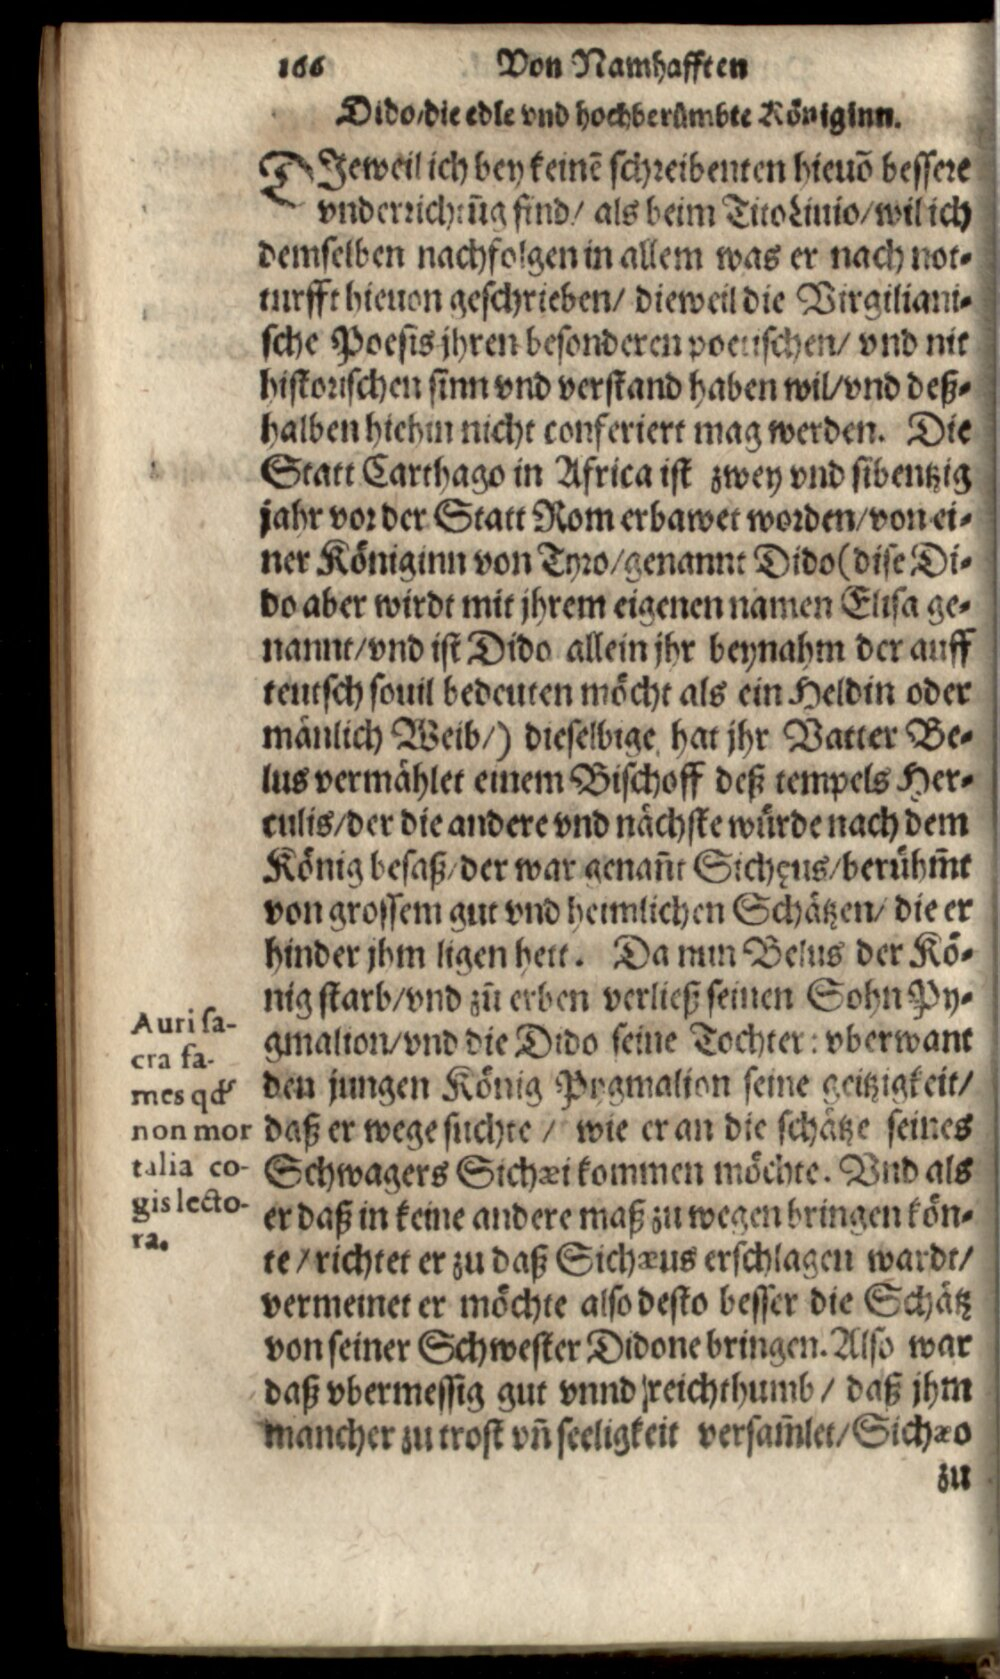 166 Von Namhafften
Dido/die edle vnd hochberümbte Königinn.
DJeweil ich bey keinē schreibenten hieuō bessere
vnderrichtūg find/ als beim Tito Liuio/wil ich
demselben nachfolgen in allem was er nach not-
turfft hieuon geschrieben/ dieweil die Virgiliani-
sche Poesis jhren besonderen poetischen/ vnd nit
historischen sinn vnd verstand haben wil/vnd deß-
halben hiehin nicht conferiert mag werden. Die
Statt Carthago in Africa ist zwey vnd sibentzig
jahr vor der Statt Rom erbawet worden/von ei-
ner Königinn von Tyro/genannt Dido(dise Di-
do aber wirdt mit jhrem eigenen namen Elisa ge-
nannt/vnd ist Dido allein jhr beynahm der auff
teutsch souil bedeuten möcht als ein Heldin oder
mänlich Weib/) dieselbige hat jhr Vatter Be-
lus vermählet einem Bischoff deß tempels Her-
culis/der die andere vnd nächste würde nach dem
König besaß/der war genañt Sichęus/berühm̃t
von grossem gut vnd heimlichen Schätzen/ die er
hinder jhm ligen hett. Da nun Belus der Kö-
nig starb/vnd zů erben verließ seinen Sohn Py-
gmalion/vnd die Dido seine Tochter: vberwant
den jungen König Pygmalion seine geitzigkeit/
daß er wege suchte / wie er an die schätze seines
Schwagers Sichæi kommen möchte. Vnd als
er daß in keine andere maß zu wegen bringen kön-
te / richtet er zu daß Sichæus erschlagen wardt/
vermeinet er möchte also desto besser die Schätz
von seiner Schwester Didone bringen. Also war
daß vbermessig gut vnnd reichthumb / daß jhm
mancher zu trost vñ seeligkeit versam̃let/Sichæo
zu
Auri sa-
cra fa-
mes qď
non mor
talia co-
gis lecto-
ra.